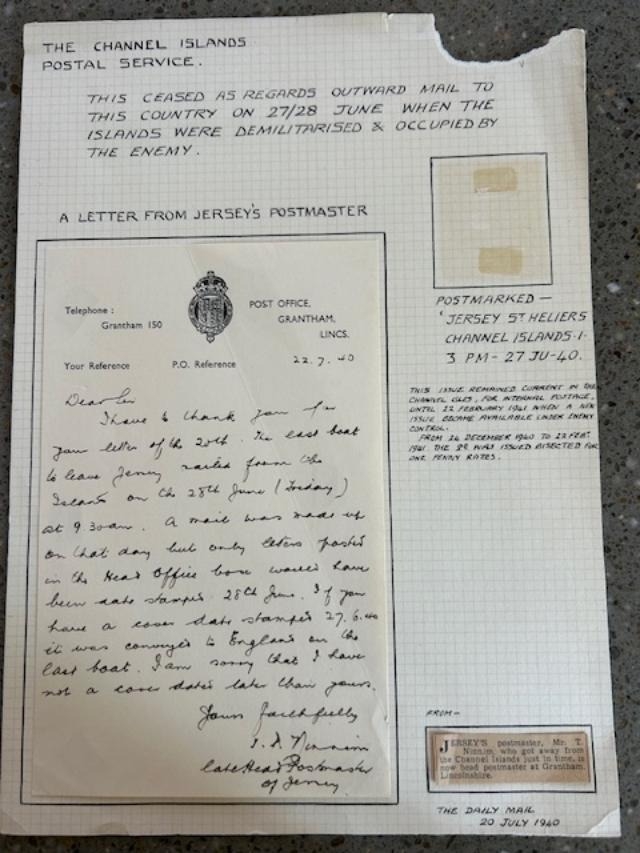 THE CHANNEL ISLANDS
POSTAL SERVICE.
THIS CEASED AS REGARDS OUTWARD MAIL TO
THIS COUNTRY ON 27/28 JUNE WHEN THE
ISLANDS WERE DEMILITARISED & OCCUPIED BY
THE ENEMY.
A LETTER FROM JERSEY'S POSTMASTER
Telephone :
Grantham 150
POST OFFICE,
GRANTHAM,
LINCS.
Your Reference P.O. Reference
22.7.40
Dear Sir
I have to thank you for
your letter of the 20th. The last boat
to leave Jersey sailed from the
Island on the 28th June (Friday)
at 9.30am. A mail was made up
on that day but only letters posted
in the Head Office box would have
been date stamped 28th June. If you
have a cover date stamped 27.6.40
it was conveyed to England on the
last boat. I am sorry that I have
not a cover dated later than yours.
Yours faithfully
Late Head Postmaster
of Jersey.
POSTMARKED —
'JERSEY ST. HELIERS
CHANNEL ISLANDS.1.
3 PM - 27 JU-40.
THIS ISSUE REMAINED CURRENT IN THE
CHANNEL ISLES, FOR INTERNAL POSTAGE,
UNTIL 22 FEBRUARY 1941 WHEN A NEW
ISSUE BECAME AVAILABLE UNDER ENEMY
CONTROL.
FROM 24 DECEMBER 1940 TO 22 FEBY.
1941 THE 2D. WAS ISSUED BISECTED FOR
ONE PENNY RATES.
FROM—
JERSEY'S postmaster, Mr. T.
Ninnim, who got away from
the Channel Islands just in time, is
now head postmaster at Grantham,
Lincolnshire.
THE DAILY MAIL
20 JULY 1940